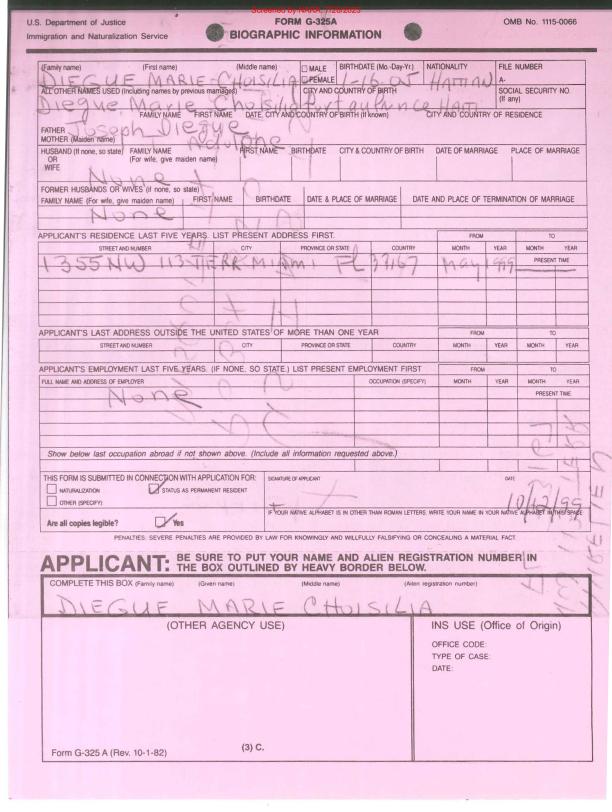 Screened by NARA, 7/26/2023
U.S. Department of Justice
FORM G-325A
OMB No. 1115-0066
Immigration and Naturalization Service
BIOGRAPHIC INFORMATION
(Family name) (First name) (Middle name) MALE BIRTHDATE (Mo.-Day-Yr.) NATIONALITY FILE NUMBER
DIEGUE MARIE-CHOISILIA FEMALE 1-16-05 HAITIAN A-
ALL OTHER NAMES USED (Including names by previous marriages) CITY AND COUNTRY OF BIRTH SOCIAL SECURITY NO.
(If any)
Diegue Marie Choisilia Port au prince Haiti
FAMILY NAME FIRST NAME DATE, CITY AND COUNTRY OF BIRTH (If known) CITY AND COUNTRY OF RESIDENCE
FATHER Joseph Diegue
MOTHER (Maiden name)
HUSBAND (If none, so state) FAMILY NAME FIRST NAME BIRTHDATE CITY & COUNTRY OF BIRTH DATE OF MARRIAGE PLACE OF MARRIAGE
OR (For wife, give maiden name)
WIFE
None
FORMER HUSBANDS OR WIVES (if none, so state)
FAMILY NAME (For wife, give maiden name) FIRST NAME BIRTHDATE DATE & PLACE OF MARRIAGE DATE AND PLACE OF TERMINATION OF MARRIAGE
None
APPLICANT'S RESIDENCE LAST FIVE YEARS. LIST PRESENT ADDRESS FIRST. FROM TO
STREET AND NUMBER CITY PROVINCE OR STATE COUNTRY MONTH YEAR MONTH YEAR
1355 NW 113 TERR MIAMI FL 33167 May 1999 PRESENT TIME
APPLICANT'S LAST ADDRESS OUTSIDE THE UNITED STATES OF MORE THAN ONE YEAR FROM TO
STREET AND NUMBER CITY PROVINCE OR STATE COUNTRY MONTH YEAR MONTH YEAR
APPLICANT'S EMPLOYMENT LAST FIVE YEARS. (IF NONE, SO STATE.) LIST PRESENT EMPLOYMENT FIRST FROM TO
FULL NAME AND ADDRESS OF EMPLOYER OCCUPATION (SPECIFY) MONTH YEAR MONTH YEAR
None PRESENT TIME
Show below last occupation abroad if not shown above. (Include all information requested above.)
THIS FORM IS SUBMITTED IN CONNECTION WITH APPLICATION FOR: SIGNATURE OF APPLICANT DATE
NATURALIZATION STATUS AS PERMANENT RESIDENT
OTHER (SPECIFY)
10/12/99
IF YOUR NATIVE ALPHABET IS IN OTHER THAN ROMAN LETTERS, WRITE YOUR NAME IN YOUR NATIVE ALPHABET IN THIS SPACE
Are all copies legible? Yes
PENALTIES: SEVERE PENALTIES ARE PROVIDED BY LAW FOR KNOWINGLY AND WILLFULLY FALSIFYING OR CONCEALING A MATERIAL FACT.
APPLICANT: BE SURE TO PUT YOUR NAME AND ALIEN REGISTRATION NUMBER IN
THE BOX OUTLINED BY HEAVY BORDER BELOW.
COMPLETE THIS BOX (Family name) (Given name) (Middle name) (Alien registration number)
DIEGUE MARIE CHOISILIA
(OTHER AGENCY USE) INS USE (Office of Origin)
OFFICE CODE:
TYPE OF CASE:
DATE:
Form G-325 A (Rev. 10-1-82) (3) C.